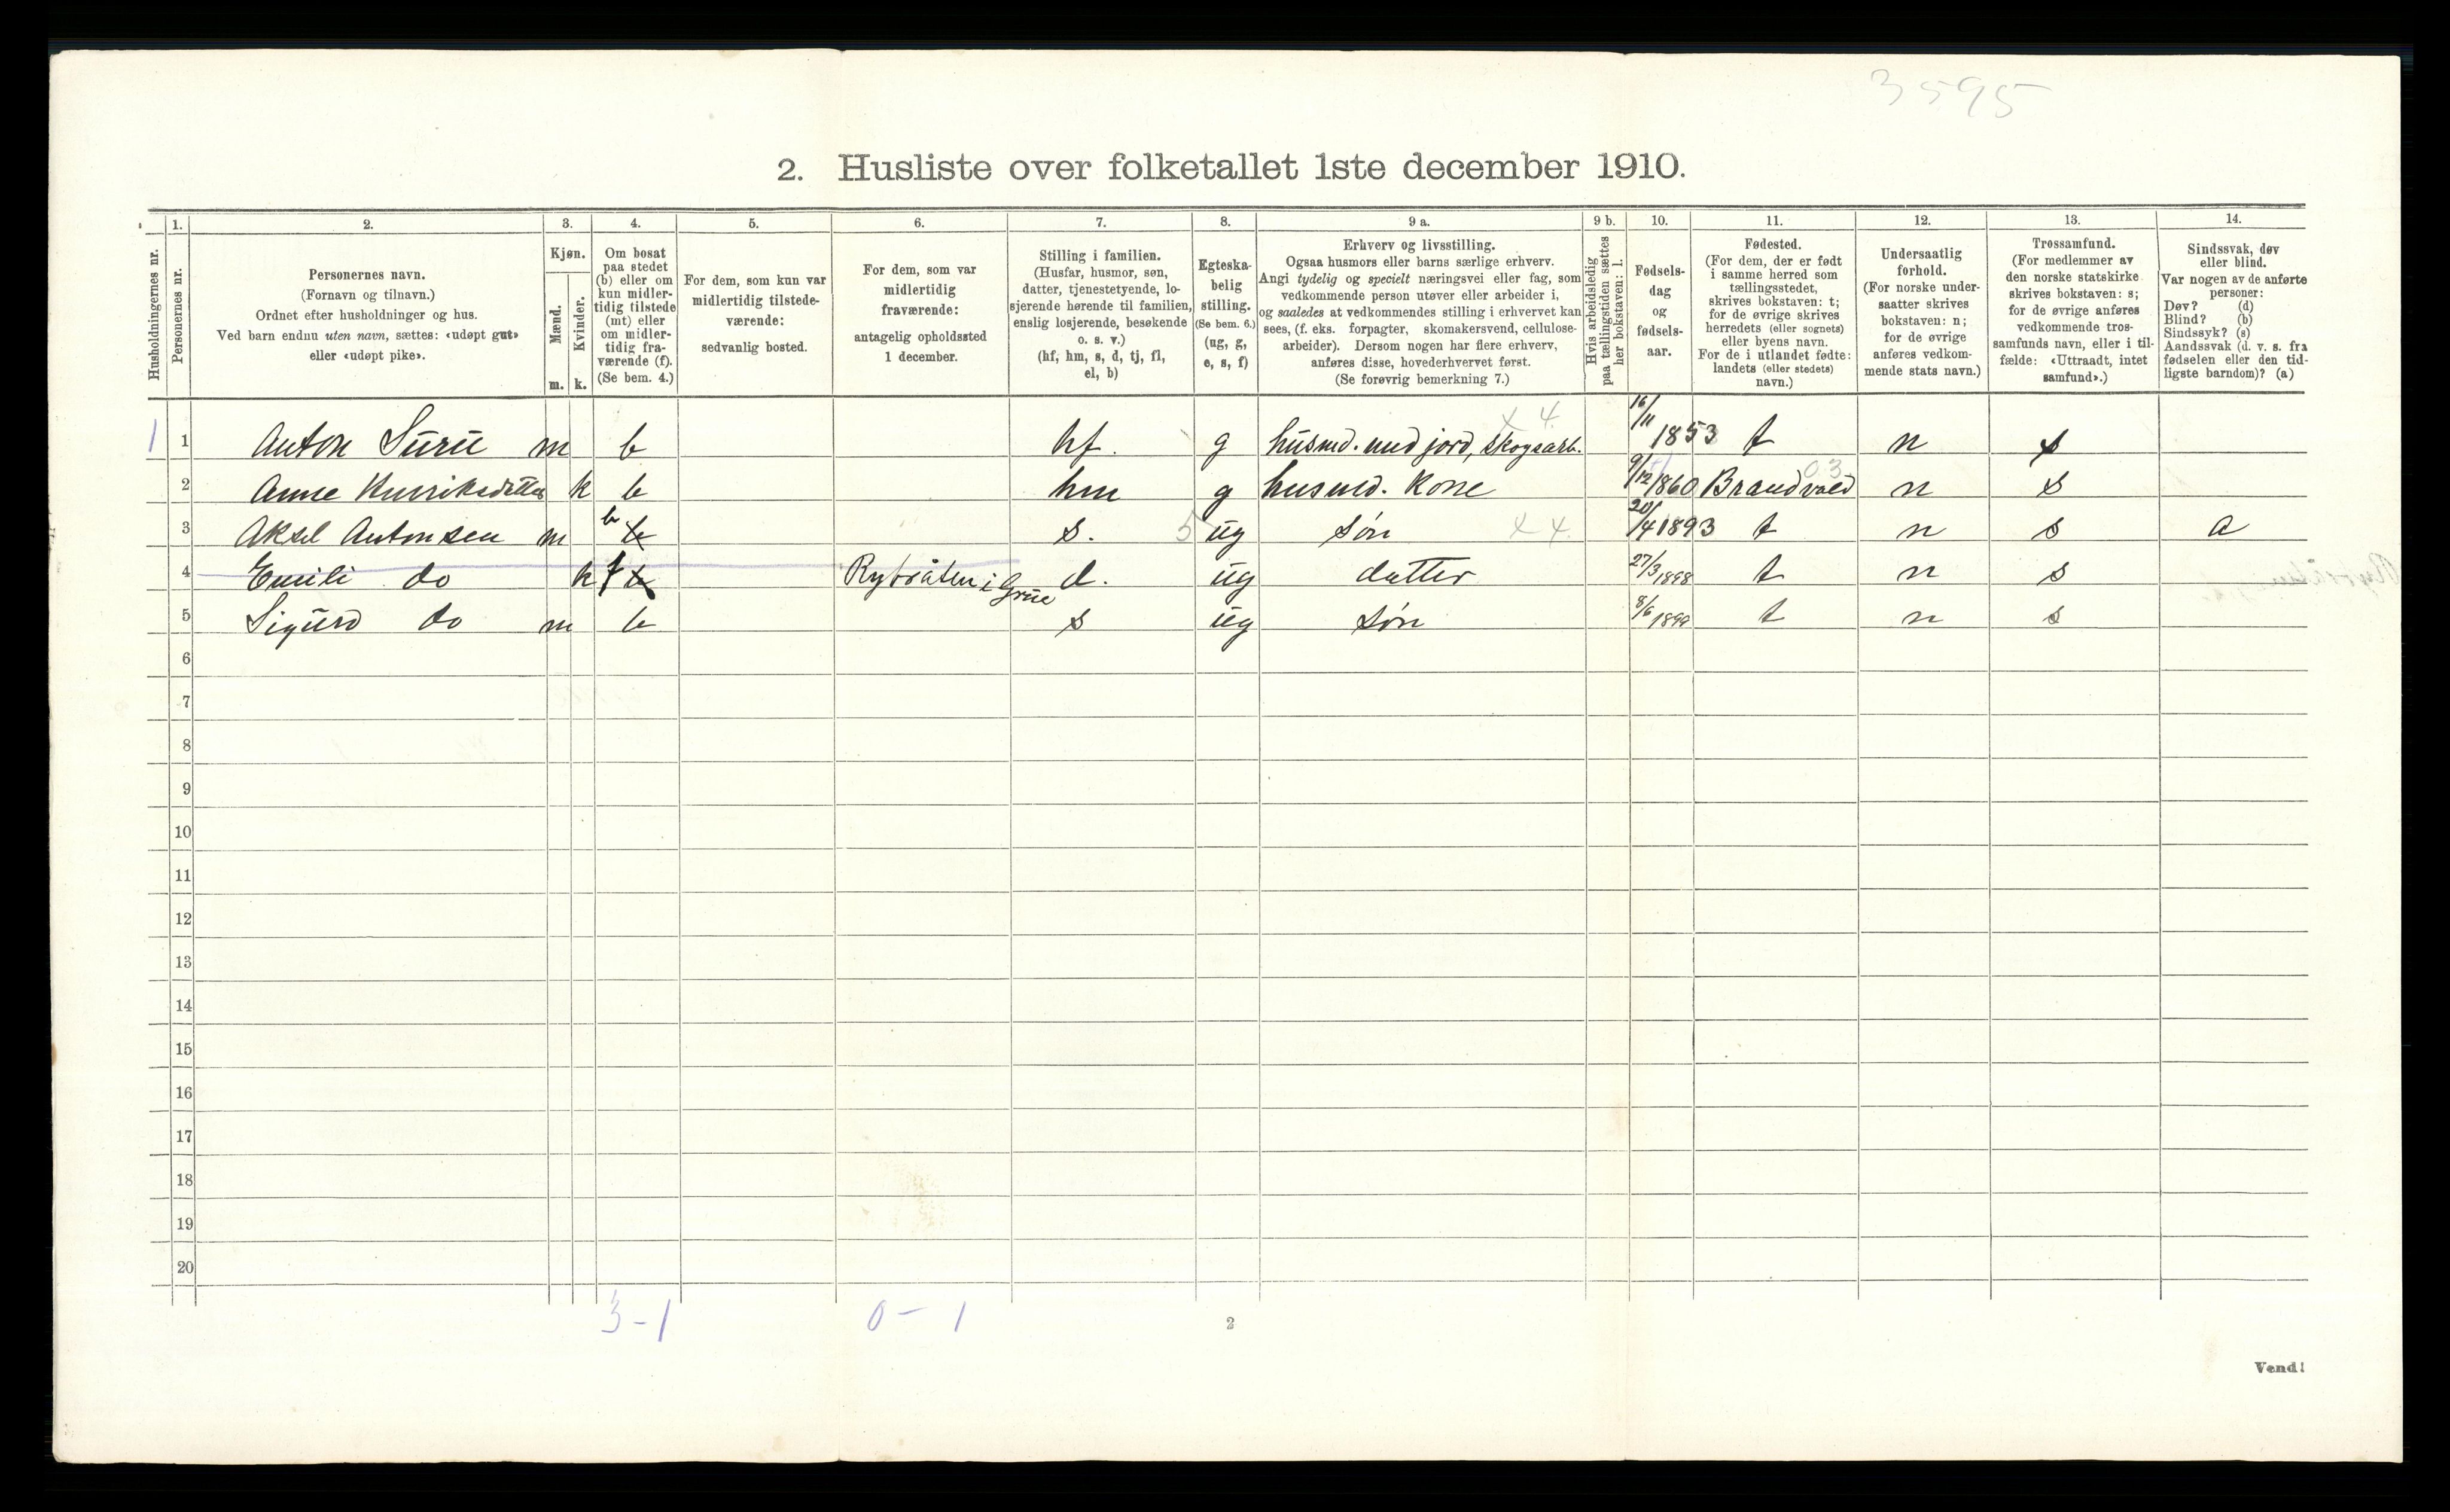 3595
2. Husliste over folketallet 1ste december 1910.
Husholdningernes nr.
1.
Personernes nr.
2.
Personernes navn.
(Fornavn og tilnavn.)
Ordnet efter husholdninger og hus.
Ved barn endnu uten navn, sættes: «udøpt gut»
eller «udøpt pike».
3.
Kjøn.
Mænd.
Kvinder.
m. k.
4.
Om bosat
paa stedet
(b) eller om
kun midler-
tidig tilstede
(mt) eller
om midler-
tidig fra-
værende (f).
(Se bem. 4.)
5.
For dem, som kun var
midlertidig tilstede-
værende:
sedvanlig bosted.
6.
For dem, som var
midlertidig
fraværende:
antagelig opholdssted
1 december.
7.
Stilling i familien.
(Husfar, husmor, søn,
datter, tjenestetyende, lo-
sjerende hørende til familien,
enslig losjerende, besøkende
o. s. v.)
(hf, hm, s, d, tj, fl,
el, b)
8.
Egteska-
belig
stilling.
(Se bem. 6.)
(ug, g,
e, s, f)
9 a.
Erhverv og livsstilling.
Ogsaa husmors eller barns særlige erhverv.
Angi tydelig og specielt næringsvei eller fag, som
vedkommende person utøver eller arbeider i,
og saaledes at vedkommendes stilling i erhvervet kan
sees, (f. eks. forpagter, skomakersvend, cellulose-
arbeider). Dersom nogen har flere erhverv,
anføres disse, hovederhvervet først.
(Se forøvrig bemerkning 7.)
9 b.
Hvis arbeidsledig
paa tællingstiden sættes
her bokstaven: l.
10.
Fødsels-
dag
og
fødsels-
aar.
11.
Fødested.
(For dem, der er født
i samme herred som
tællingsstedet,
skrives bokstaven: t;
for de øvrige skrives
herredets (eller sognets)
eller byens navn.
For de i utlandet fødte:
landets (eller stedets)
navn.)
12.
Undersaatlig
forhold.
(For norske under-
saatter skrives
bokstaven: n;
for de øvrige
anføres vedkom-
mende stats navn.)
13.
Trossamfund.
(For medlemmer av
den norske statskirke
skrives bokstaven: s;
for de øvrige anføres
vedkommende tros-
samfunds navn, eller i til-
fælde: «Uttraadt, intet
samfund».)
14.
Sindssvak, døv
eller blind.
Var nogen av de anførte
personer:
Døv? (d)
Blind? (b)
Sindssyk? (s)
Aandssvak (d. v. s. fra
fødselen eller den tid-
ligste barndom)? (a)
x 4.
1 1 Anton Suru m b hf. g husmd. med jord, skogsarb. 16/11 1853 t n s
03
2 Anne Henriksdatter k b hm g husmd. kone 9/12 1860 Brandvold n s
3 Aksel Antonsen m b b s. 5 ug søn x 4. 20/4 1893 t n s a
4 Emili do k f b Rybråten i Grue d. ug datter 27/3 1898 t n s
5 Sigurd do m b s ug søn 8/6 1899 t n s
6
7
8
9
10
11
12
13
14
15
16
17
18
19
20
3 - 1 0 - 1
2
Vend!